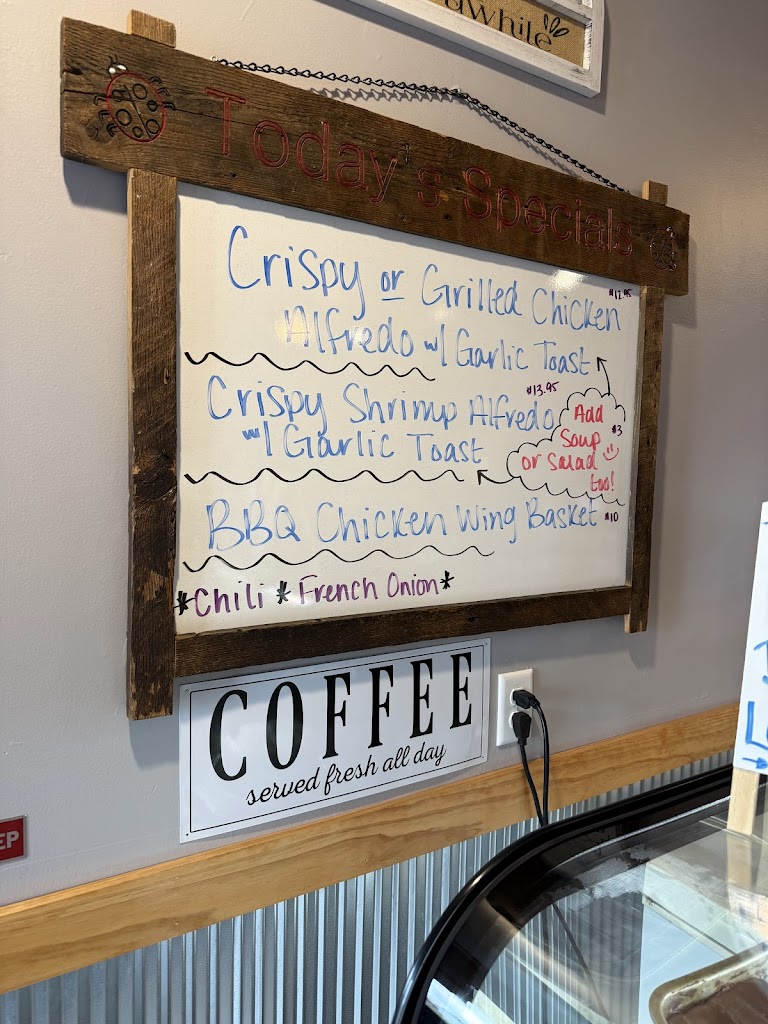 awhile
Today's Specials
Crispy or Grilled Chicken $12.95
Alfredo w/ Garlic Toast
Crispy Shrimp Alfredo $13.95
w/ Garlic Toast
Add $3
Soup
or Salad
too!
BBQ Chicken Wing Basket $10
*Chili * French Onion*
COFFEE
served fresh all day
EP